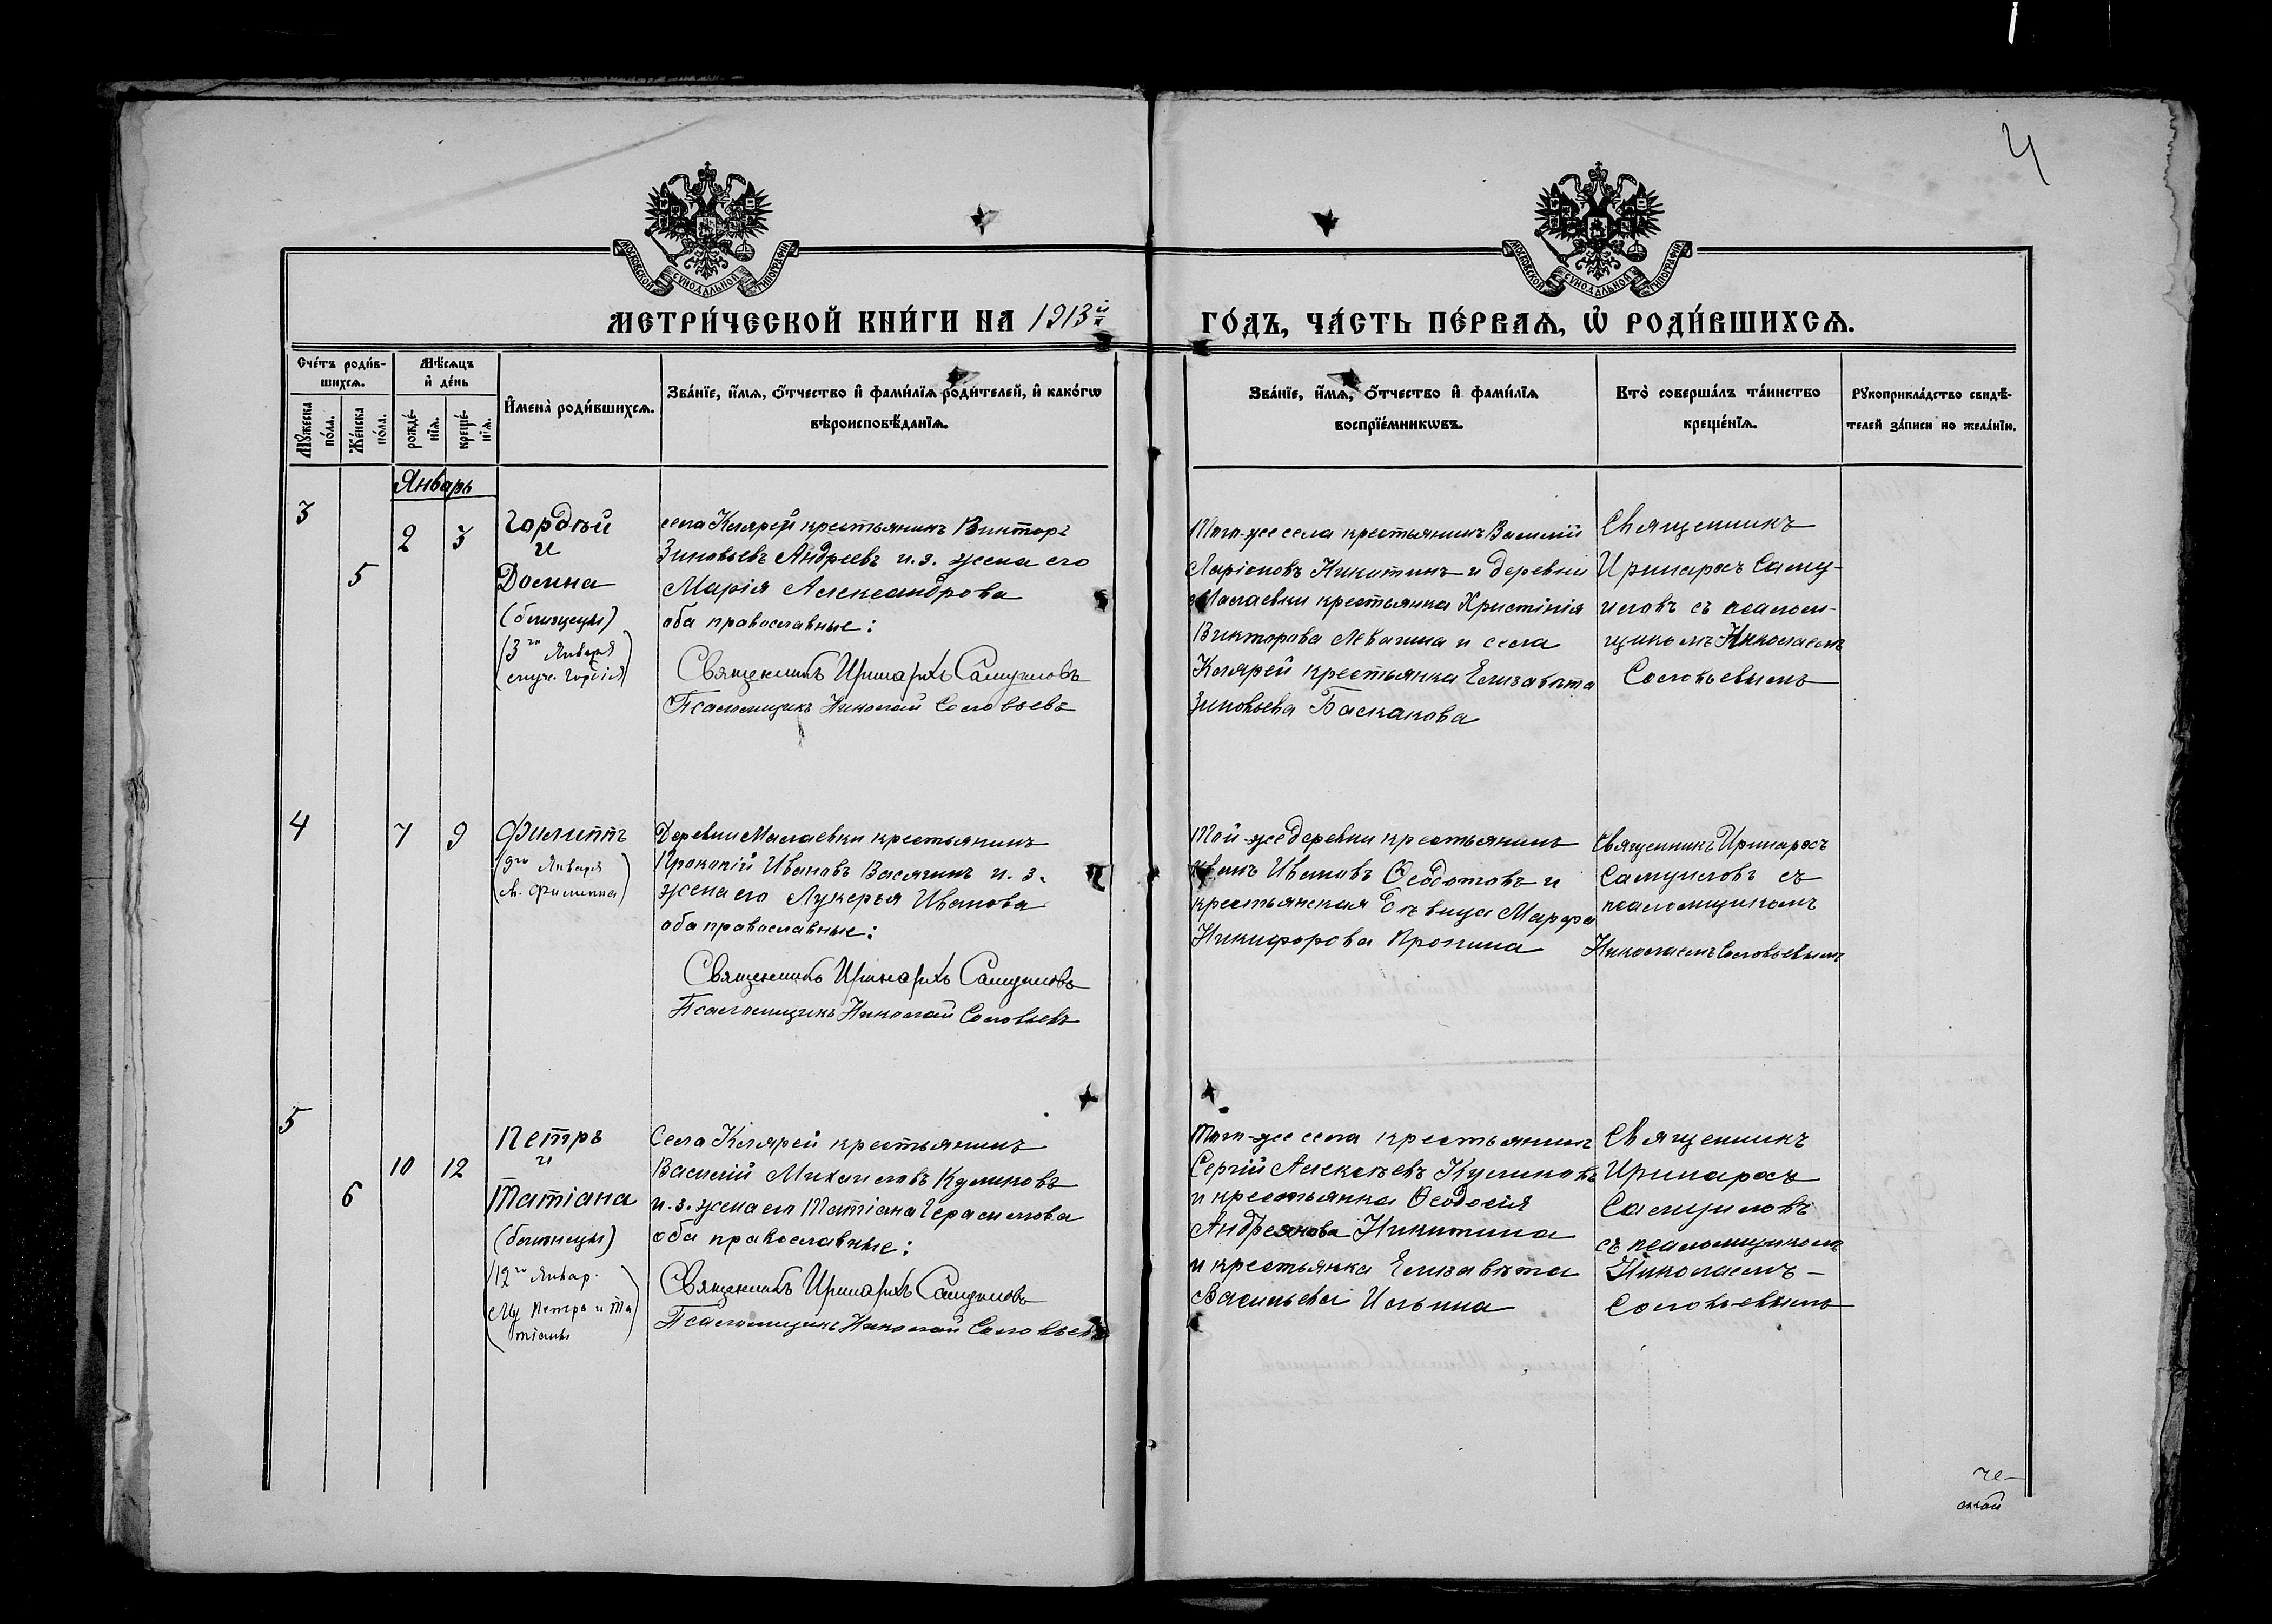 4
МОСКОВСКОЙ СѴНОДАЛЬНОЙ ТИПОГРАФІИ
МОСКОВСКОЙ СѴНОДАЛЬНОЙ ТИПОГРАФІИ
МЕТРИ́ЧЕСКОЙ КНИ́ГИ НА 1913й
ГО́ДЪ, ЧА́СТЬ ПЕ́РВАѦ, Ѡ҆ РОДИ́ВШИХСѦ.
Сче́тъ роди́в-
шихсѧ.
Мꙋ́жеска
по́ла.
Же́нска
по́ла.
Мѣ́сѧцъ
и҆ де́нь
рожде́-
нїѧ.
креще́-
нїѧ.
И҆мена̀ роди́вшихсѧ.
Зва́нїе, и҆́мѧ, ѻ҆́тчество и҆ фами́лїѧ роди́телей, и҆ како́гѡ
вѣроисповѣ́данїѧ.
Зва́нїе, и҆́мѧ, ѻ҆́тчество и҆ фами́лїѧ
воспрїе́мникѡвъ.
Кто̀ соверша́лъ та́инство
креще́нїѧ.
Рꙋкоприкла́дство свидѣ́-
телей за́писи по жела́нїю.
Январь
3
5
2
3
Гордѣй
и
Домна
(близнецы)
(3го Января
(
села Клярей крестьянинъ Викторъ
Зиновьевъ Андреевъ и.з. жена его
Марія Александрова
оба православные:
Священникъ Иринархъ Самуиловъ
Псаломщикъ Николай Соловьевъ
Того-же села крестьянинъ Василій
Ларіоновъ Никитинъ и деревни
Маслаевки крестьянка Христинія
Викторова Левагина и села
Клярей крестьянка Елизавета
Зиновьева Баскакова
Священникъ
Иринархъ Саму-
иловъ съ псалом-
щикомъ Николаемъ
Соловьевымъ
4
7
9
Филиппъ
(9го Января
(м. Филиппа)
Деревни Маслаевки крестьянинъ
Прокопій Ивановъ Васягинъ и.з.
жена его Лукерья Иванова
оба православные:
Священникъ Иринархъ Самуиловъ
Псаломщикъ Николай Соловьевъ
Той-же деревни крестьянинъ
Ивановъ Ѳеодотовъ и
крестьянская дѣвица Марфа
Никифорова Пронина
Священникъ Иринархъ
Самуиловъ съ
псаломщикомъ
Николаемъ Соловьевымъ
5
6
10
12
Петръ
и
Татіана
(близнецы)
(12го Январ.
Му Петра и Та
тіаны)
Села Клярей крестьянинъ
Василій Михаиловъ Куликовъ
и.з. жена его Татіана Герасимова
оба православные:
Священникъ Иринархъ Самуиловъ
Псаломщикъ Николай Соловьевъ
Того-же села крестьянинъ
Сергій Алексѣевъ Куликовъ
и крестьянка Ѳеодосія
Андреянова Никитина
и крестьянка Елизавета
Васильева Ильина
Священникъ
Иринархъ
Самуиловъ
съ псаломщикомъ
Николаемъ -
Соловьевымъ